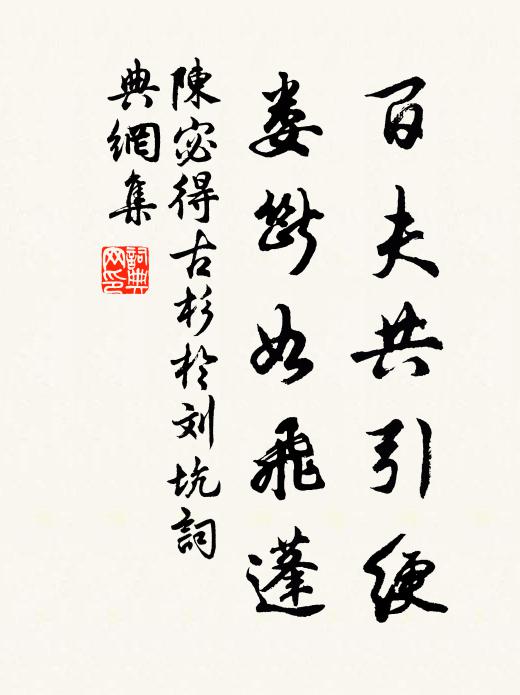 百夫共引绠
娄断如飛蓬
陳宓得古杉於刘坑詞
典網集
詞典網印